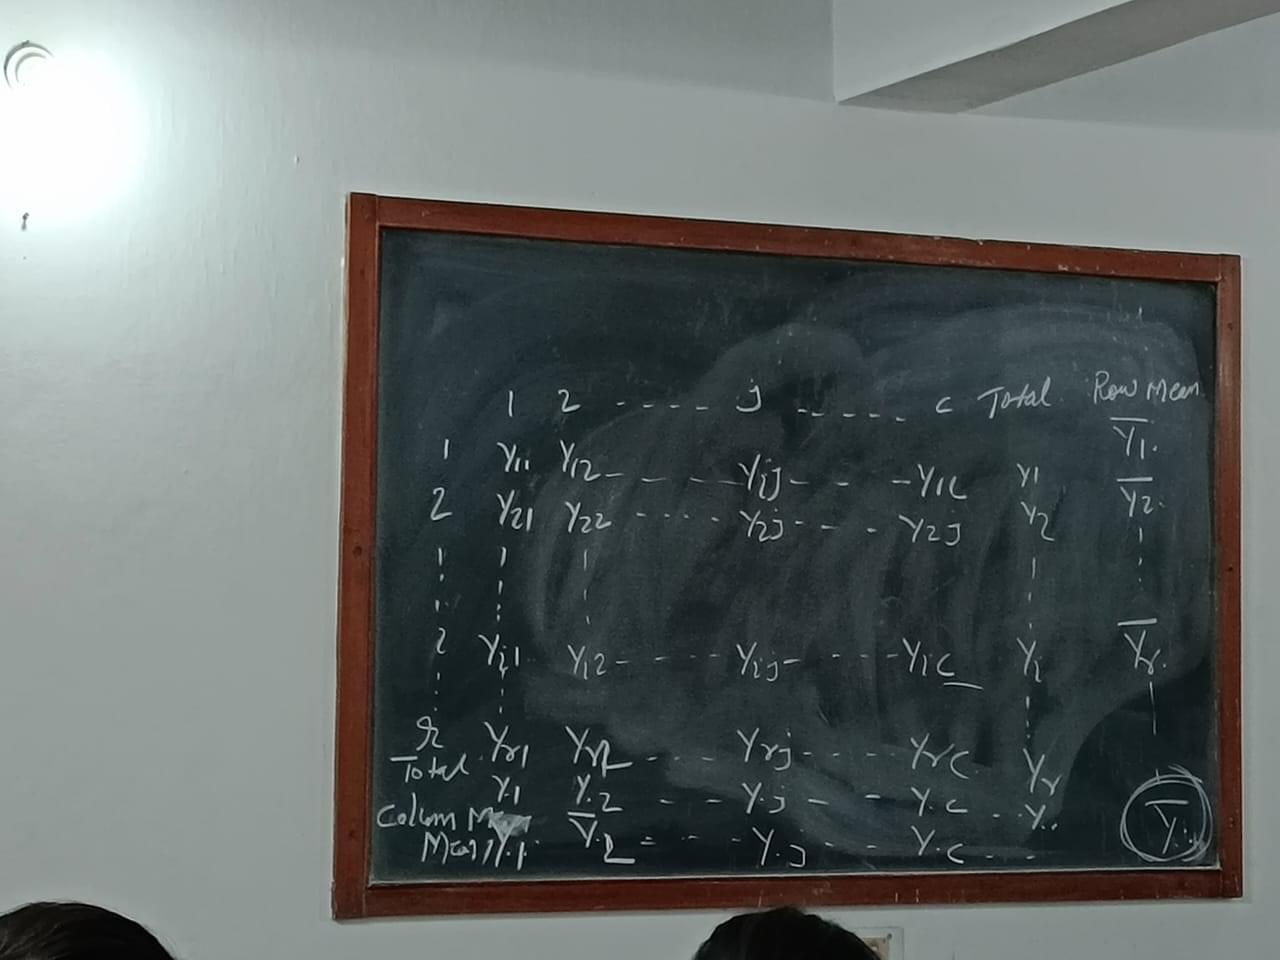 1 2 - - - - j - - - - - c Total Row Mean
1 Y11 Y12 - - - - Yij - - - Y1c Y1 Ȳ1.
2 Y21 Y22 - - - - Y2j - - - Y2j Y2 Ȳ2.
i Yi1 Yi2 - - - - Yij - - - - Yic Yi Ȳr.
r Yr1 Yr2 - - - - Yrj - - - - Yrc Yr
Total Y.1 Y.2 - - - Y.j - - Y.c - - Y.. Ȳ..
Colum
Mean Y.1 Ȳ.2 - - - Y.j - - Y.c - - -